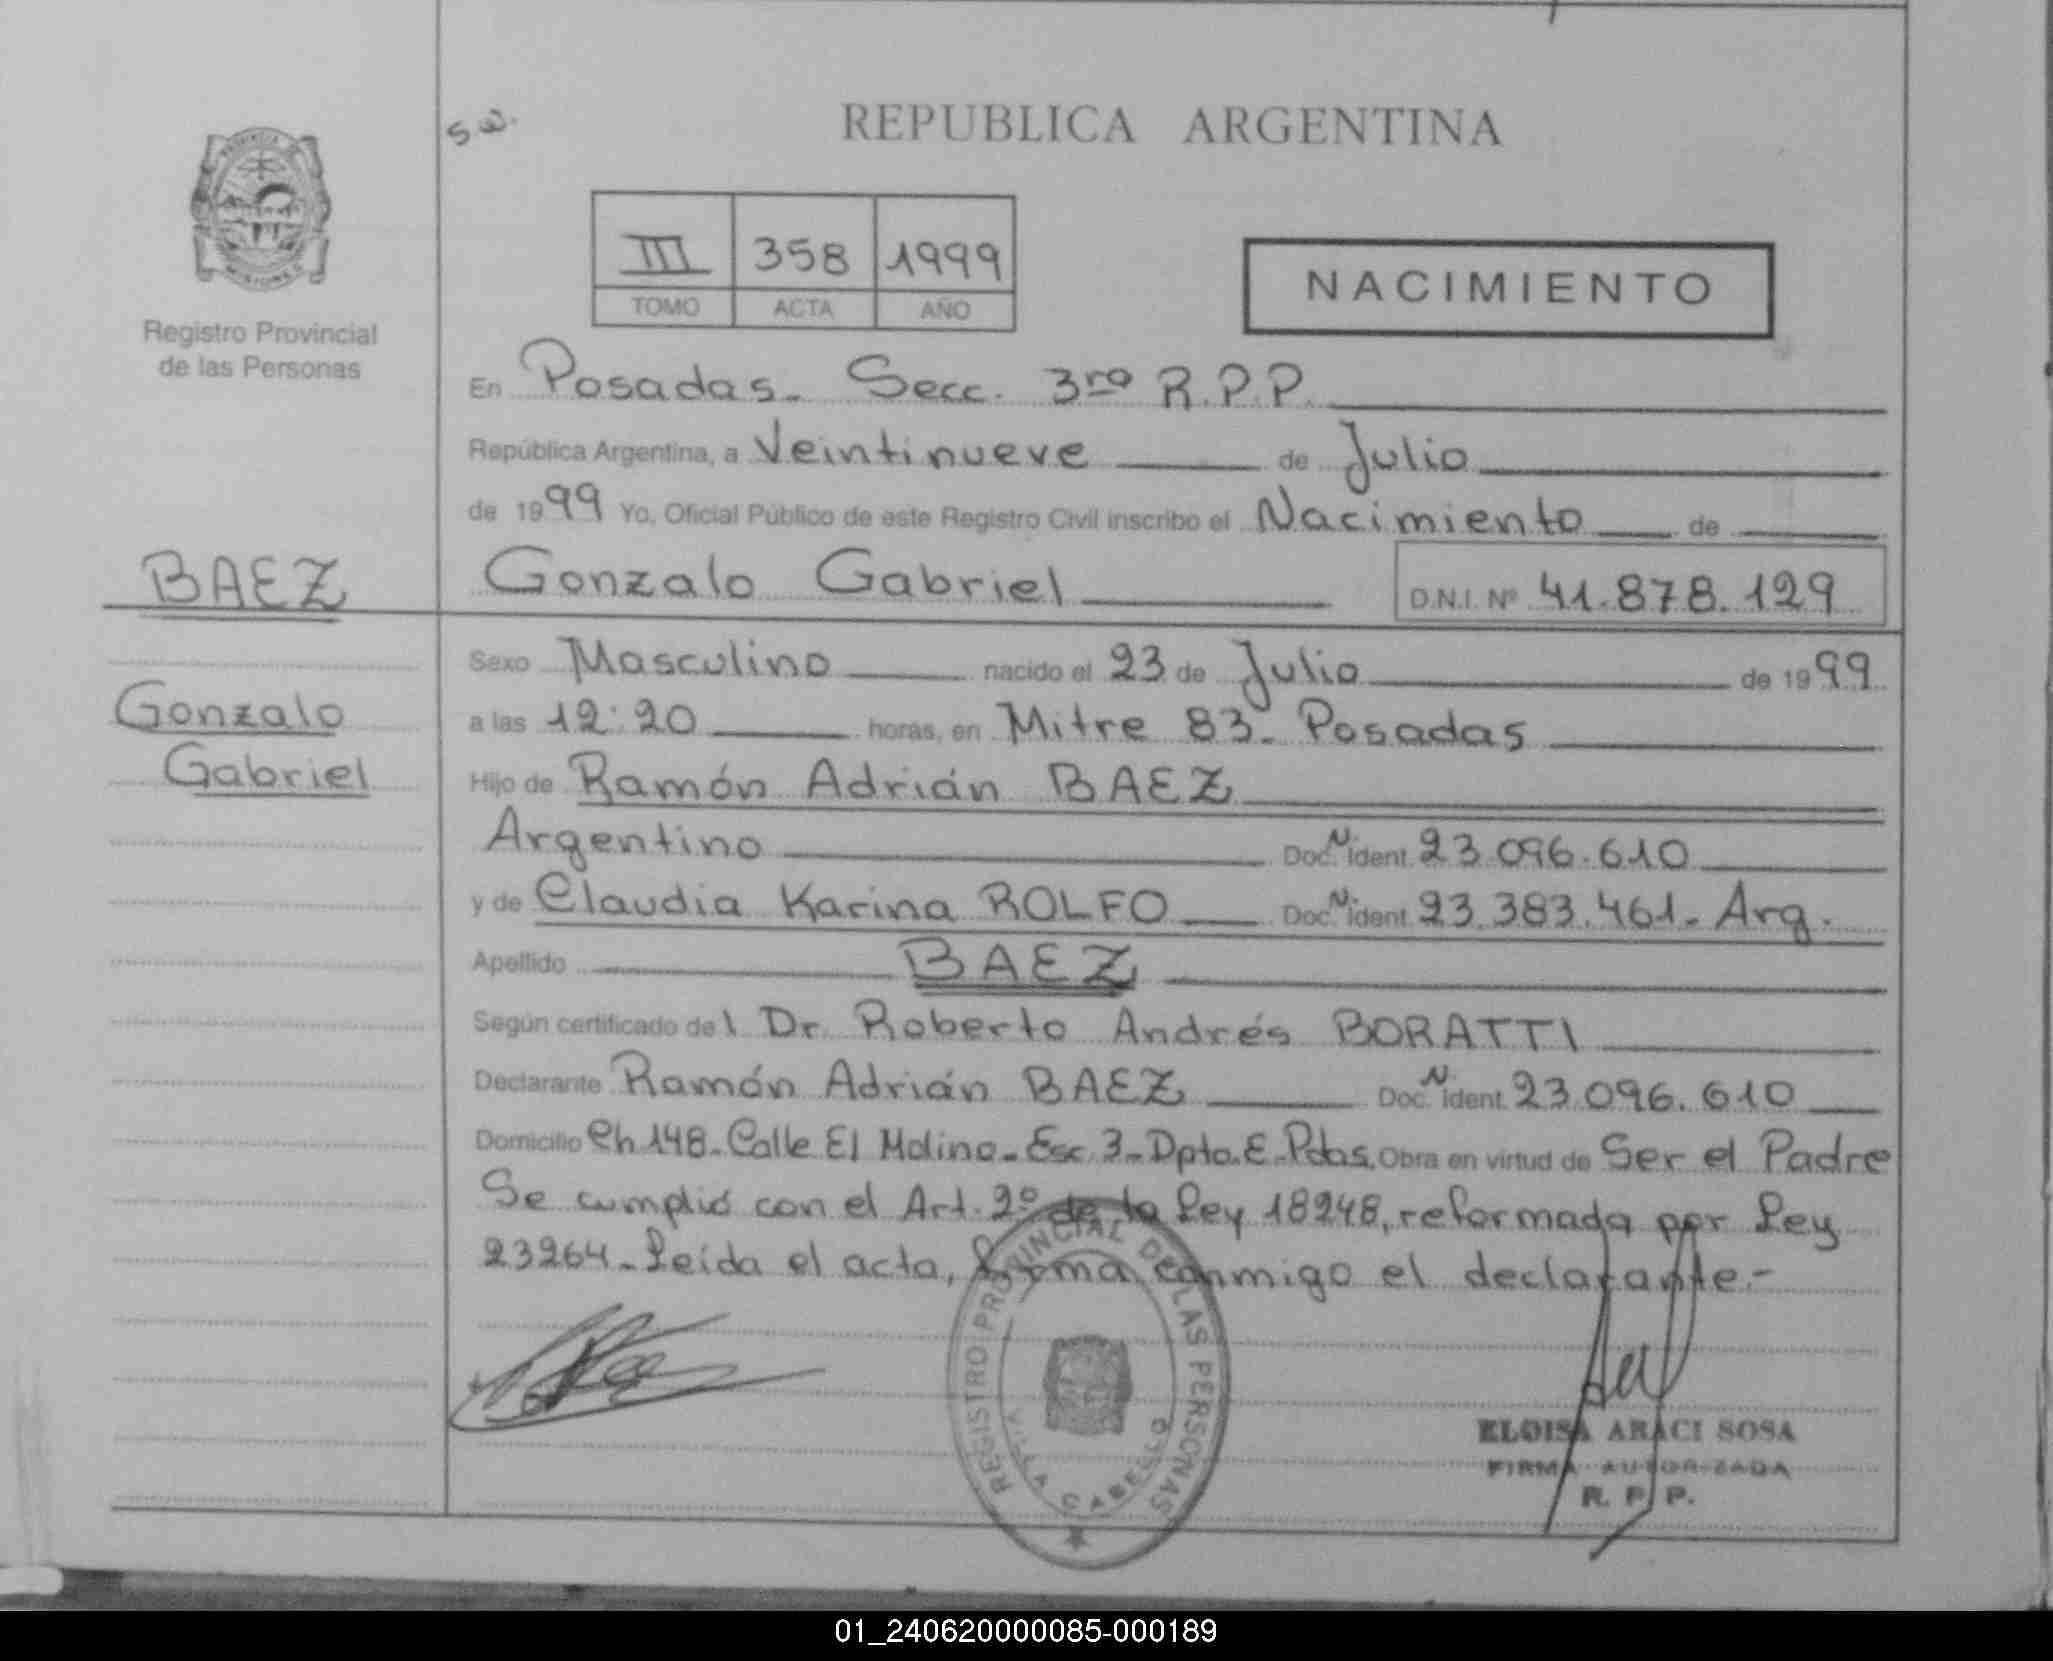 REPUBLICA ARGENTINA
S.W.
PROVINCIA DE
MISIONES
Registro Provincial
de las Personas
III 358 1999
TOMO ACTA AÑO
NACIMIENTO
En Posadas. Secc. 3ra R.P.P.
República Argentina, a Veintinueve de Julio
de 1999 Yo, Oficial Público de este Registro Civil inscribo el Nacimiento de
BAEZ
Gonzalo Gabriel D.N.I. Nº 41.878.129
Gonzalo
Gabriel
Sexo Masculino nacido el 23 de Julio de 1999
a las 12:20 horas, en Mitre 83. Posadas
Hijo de Ramón Adrián BAEZ
Argentino Doc. N. Ident. 23.096.610
y de Claudia Karina ROLFO Doc. N. Ident. 23.383.461. Arg.
Apellido BAEZ
Según certificado del Dr. Roberto Andrés BORATTI
Declarante Ramón Adrián BAEZ Doc. N. Ident. 23.096.610
Domicilio Ch 148. Calle El Molino. Esc. 3. Dpto. E. Pdas. Obra en virtud de Ser el Padre
Se cumplió con el Art. 2º de la Ley 18248, reformada por Ley
23264. Leída el acta, firma conmigo el declarante.-
REGISTRO PROVINCIAL DE LAS PERSONAS
VILLA CABELLO
ELOISA ARACI SOSA
FIRMA AUTORIZADA
R. P. P.
01_240620000085-000189